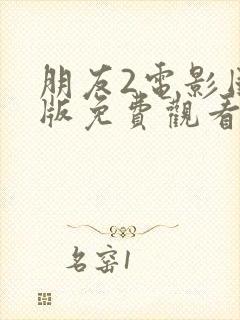 朋友2電影
版免費觀看
名窑1